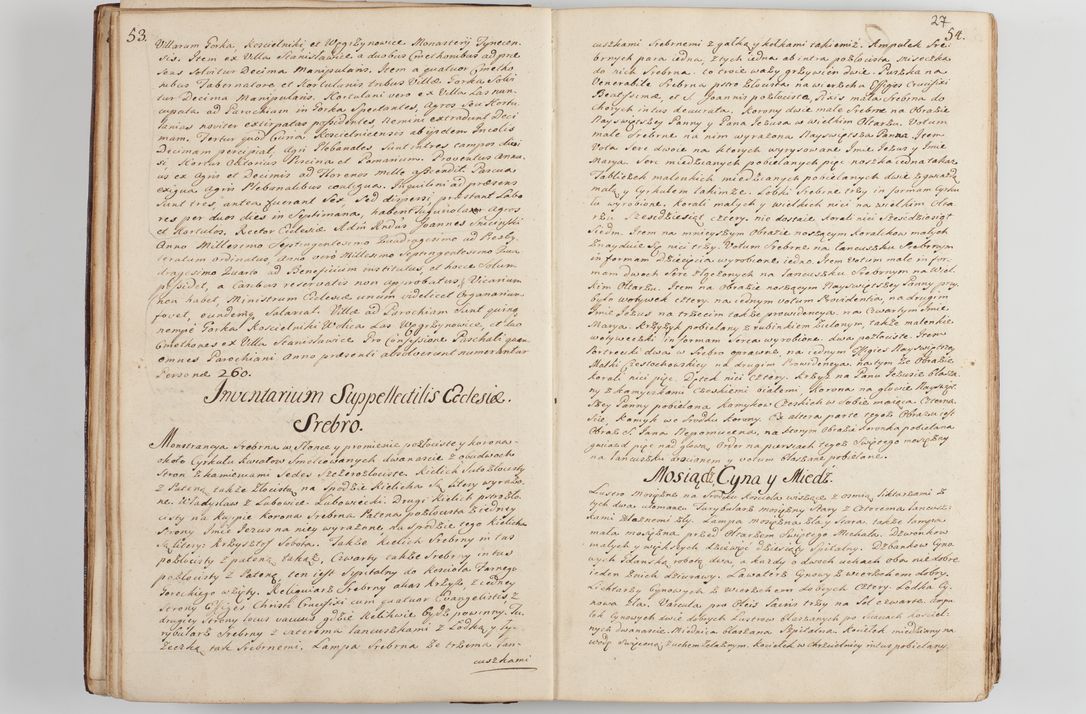 53.
Villarum Gorka, Koscielniki, et Węgrzynowice Monasterij Tynecen-
sis. Item ex Villa Stanisławice a duobus Cmethonibus ad præ-
sens solvitur Decima Manipularis. Item a quatuor Cmetho
nibus Tabernatore et Hortulanis tribus Villæ Gorka Solvi
tur Decima Manipularis. Hortulani vero ex Villa Las nun-
cupata ad Parochiam in Gorka Spectantes, Agros seu Hortu
lanias noviter extirpatas possidentes, nemini extradunt Deci
mam. Fertur quod Curia Koscielnicensis ab ijsdem Incolis
Decimam percipiat, Agri Plebanales sunt inter campos divi
si. Hortus Olitorius Piscina et Pomarium. Proventus Annu-
us ex Agris et Decimis ad Florenos mille ascendit. Pascua
exigua Agris Plebanalibus contigua. Inquilini ad præsens
sunt tres, antea fuerant sex, sed dispersi, præstant Labo
res per duos dies in Septimana, habent Agros
et Hortulos. Rector Ecclesiæ Adm Rndus Joannes
Anno Millesimo Septingentesimo Quadragesimo ad Presby
teratum ordinatus, Anno vero Millesimo Septingentesimo Qua
dragesimo Quarto ad Beneficium institutus, et hocce solum
possidet, a Casibus reservatis non approbatus, Vicarium
non habet, Ministrum Ecclesiæ unum videlicet Organarium
fovet, eundemq Salariat. Villæ ad Parochiam sunt quinq
nempe Gorka Koscielniki Wolica Las Węgrzynowice, et duo
Cmethones ex Villa Stanisławice Pro Confessione Paschali quam
omnes Parochiani Anno præsenti absolverant numerantur
Personæ 260.
Inventarium Suppellectilis Ecclesiæ.
Srebro.
Monstrancya Srebrna w Słonce y promienie pozłociste y korona
około Cyrkułu Kwiatow Smelcowanych dwanascie z obudwoch
Stron z kamieniami Sedes Szczerozłociste. Kielich Suto złocisty
z Pateną także złocistą na spodzie Kielicha są litery wyrażo-
ne. Władysław z Lubowice Lubowiecki. Drugi Kielich pstrozło-
cisty na Kuppie korona Srebrna Patena pozłocista z iedney
Strony Imie Jezus na niey wyrażone, na spodzie tego Kielicha
są litery: Krzysztof Sobota. Także Kielich Srebrny intus
pozłocisty z pateną takąż, Czwarty także Srebrny intus
pozłocisty z Pateną, ten jest Szpitalny do kosciola Farnego
Goreckiego wzięty. Reliquiarz Srebrny alias Krzyżyk z iedney
Strony Effigies Christi Crucifixi cum quatuor Evangelistis z
drugiey Strony locus vacuus gdzie Relikwie bydź powinny. Tu
rybularz Srebrny z czterema łancuszkami z Łodką y ły-
żeczką tak Srebrnemi. Lampa Srebrna ze trzema łan-
cuszkami
27
54.
cuszkami Srebrnemi z gałką y kołkami takiemiż. Ampułek Sre-
brnych para iedna, z tych iedna ab intra pozłocista miseczka
do nich Srebrna. to troie waży grzywien dwie. Puszka na
Venerabile Srebrna pstro złocista na wierzchu Effigies Crucifixi
Beatissimæ, et S Joannis pozłociste, Pixis mała Srebrna do
chorych intus deaurata. Korony dwie małe Srebrne na Obrazie
Nayswiętszey Panny y Pana Jezusa w wielkim Ołtarzu. Votum
małe Srebrne na nim wyrażona Nayswiętsza Panna. Item
Vota Serc dwoie na ktorych wyrysowane Imie Jezus y Imie
Marya. Serc miedzianych pobielanych pięc noszka iedna takaż
Tabliczek malenkich miedzianych pobielanych dwie z gwiazdą
małą y Cyrkułem takimże. Łebki Srebrne trzy in formam Cyrku
łu wyrobione. Korali małych y wielkich nici na wielkim Ołta-
rzu Szescdziesiąt cztery. nie dostaie korali nici Szescdziesiąt
Siedm. Item na mnieyszym Obrazie noszącym koralikow małych
znayduie się nici trzy. Votum Srebrne na łancuszku Srebrnym
in formam dziecięcia wyrobione iedno. Item Votum małe in for-
mam dwoch Serc złączonych na łancuszku Srebrnym na Wiel-
kim Ołtarzu. Item na Obrazie noszącym Nayswiętszey Panny przy
było wotywek cztery. na iednym votum Providentia, na drugim
Imie Jezus na trzecim także providencya. na Czwartym Imie
Marya. Krzyżyk pobielany z rubinkiem zielonym, także malenkie
wotyweczki in formam Serca wyrobione. dwa pozłociste. Item
Portreciki dwa w Srebro oprawne, na iednym Effigies Nayswiętszey
Matki Częstochowskiey na drugim Providencya. na tym że Obrazie
korali nici pięc. Dętek nici cztery. Krzyż na Panu Jezusie blasza
ny z kamyszkami Czeskiemi białemi. Korona na głowie Nayswięt-
szey Panny pobielana kamykow Czeskich w sobie maiąca. Czterna
scie, kamyk we srodku korony. Ex altera parte tegoż Obrazu iest
Obraz S. Jana Nepomucena, na ktorym Obrazie koronka pobielana
gwiazd pięc nad głową, Order na piersiach tegoż Swiętego mosiężny
na łancuszku drucianym y votum blaszane pobielane.
Mosiądz Cyna y Miedź.
Lustro mosiężne na srodku kosciola wiszące z osmią lichtarzami z
tych dwa ułomane. Turybularz mosiężny stary z Czterema łancusz-
kami Żelaznemi zły. Lampa mosiężna zła y stara. także lampa
mała mosiężna przed Ołtarzem Swiętego Michała. Dzwonkow
małych y większych dziewięc dziesiąty Szpitalny. Dzbankow Cyno
wych Gdanską robotą dwa, a każdy o dwoch uchach oba niedobre
ieden z nich dziurawy. Lawaterz Cynowy z wierzchem dobry.
Lichtarzy Cynowych z Wierzchem dobrych cztery. Łodka Cy
nowa zła. Vascula pro Oleis Sacris trzy na Sol czwarte. Ampu
łek Cynowych dwie dobrych Lustrow blaszanych po scianach koscial-
nych dwanascie. Miednica blaszana Szpitalna. Kociełek miedziany na
wodę swięconą z uchem żelaznym. Kociełek w Chrzcielnicy intus pobielany.